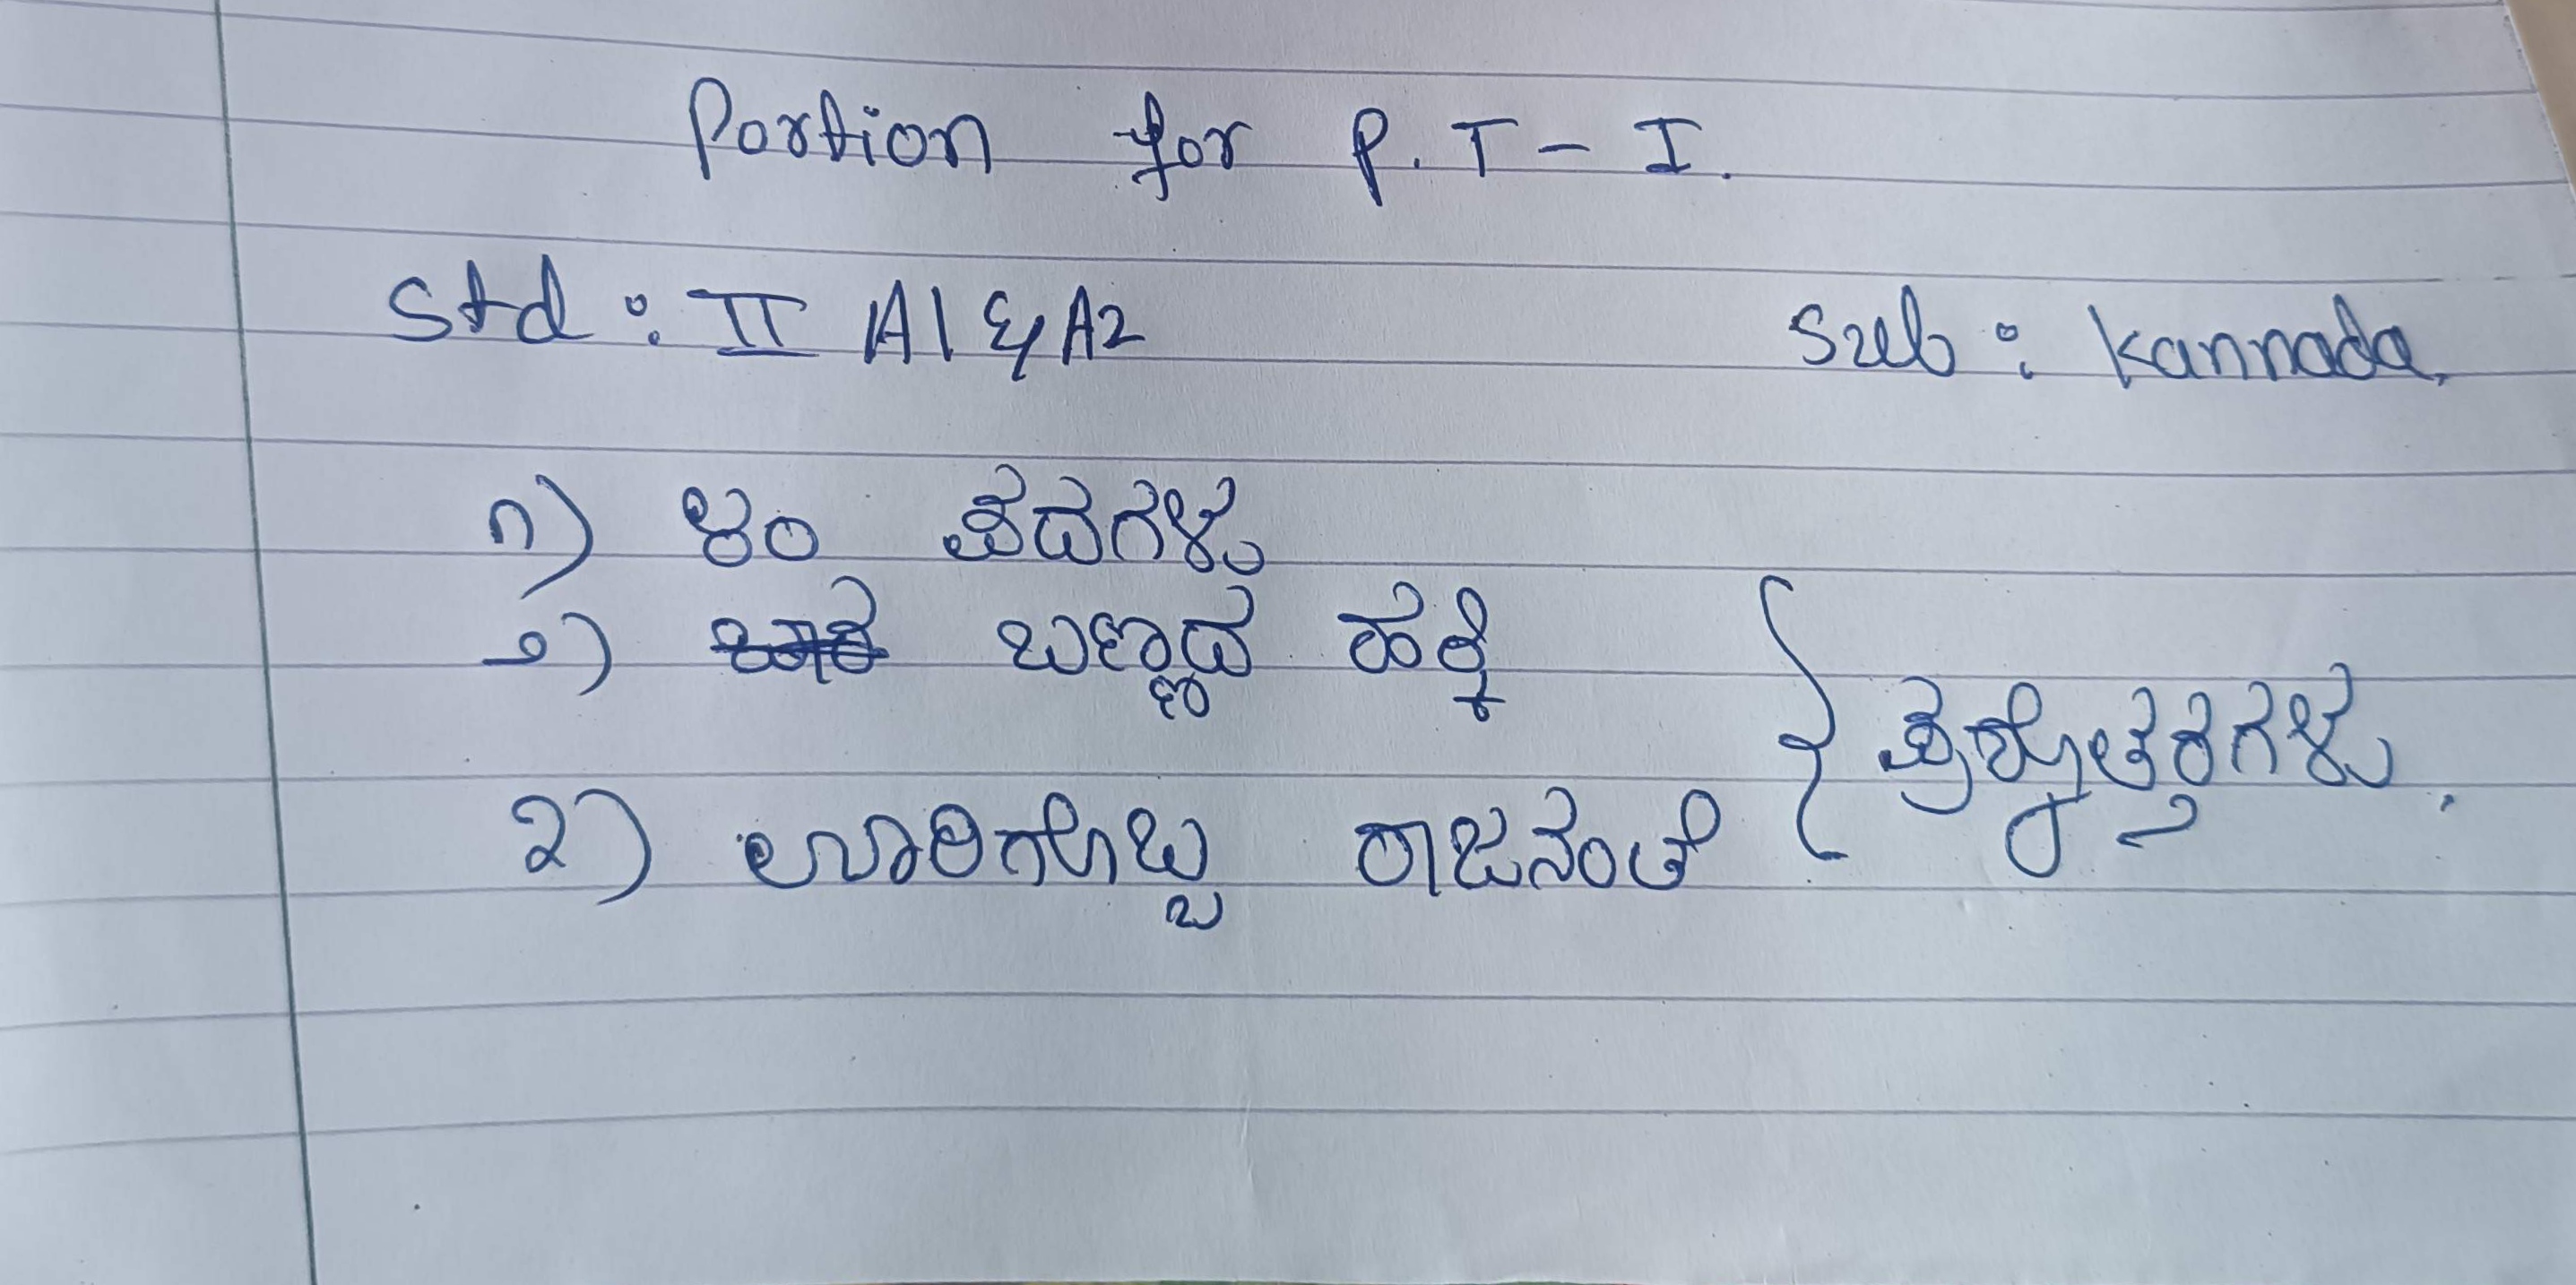 Portion for P.T - I.
Std : II A1 & A2 Sub : Kannada.
೧) ೪೦ ಪದಗಳು
೨) ಬಣ್ಣದ ಹಕ್ಕಿ
೩) ಊರಿಗೊಬ್ಬ ರಾಜನಂತೆ
{ ಪ್ರಶ್ನೋತ್ತರಗಳು.